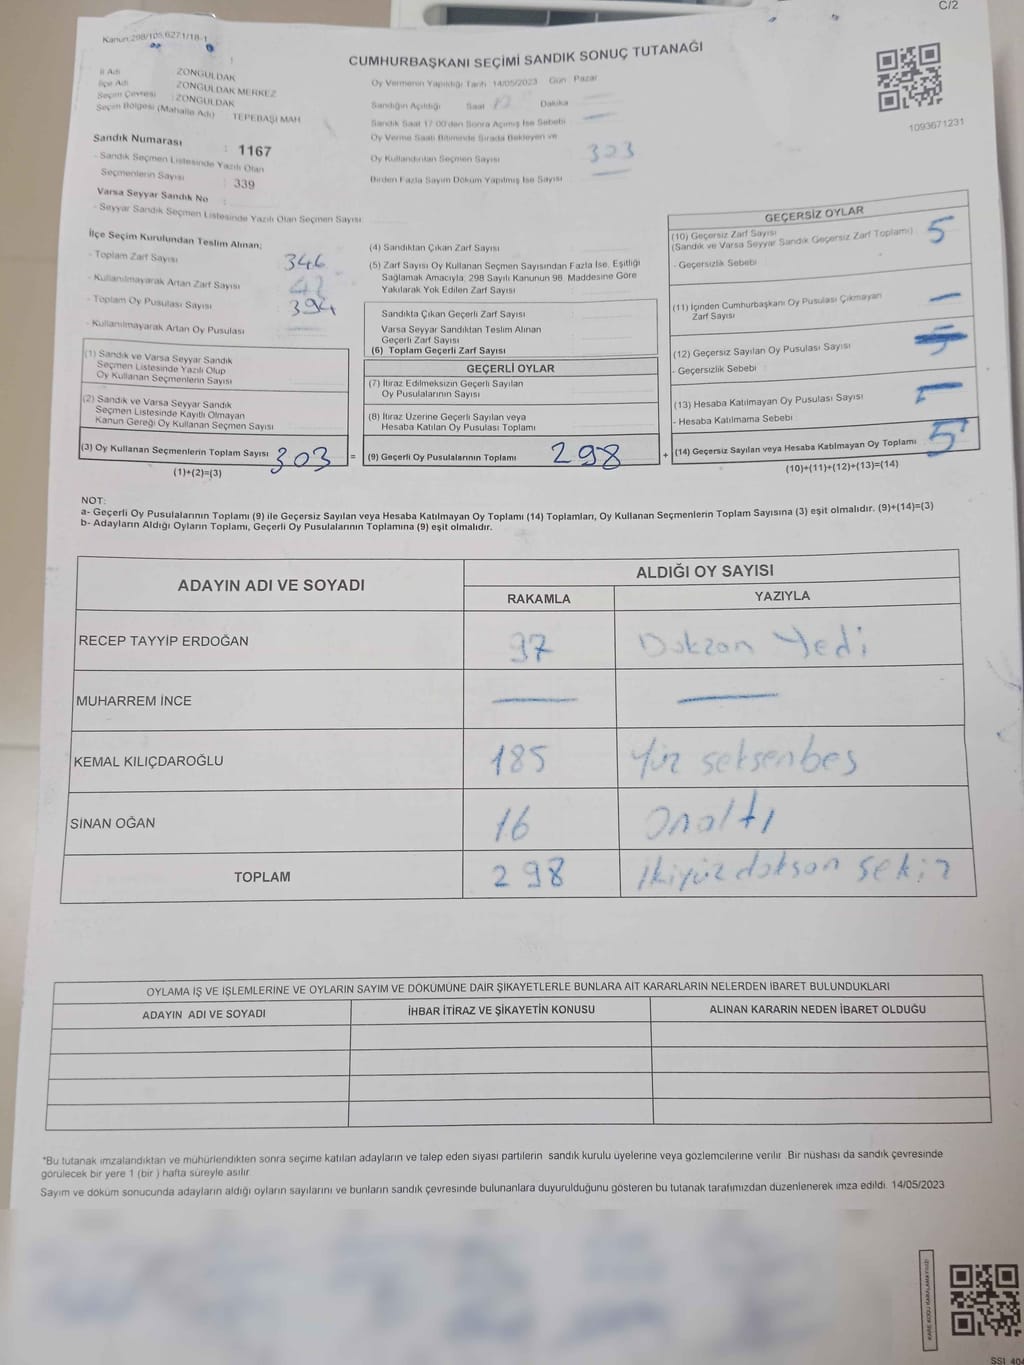 C/2
Kanun:298/105,6271/18-1
CUMHURBAŞKANI SEÇİMİ SANDIK SONUÇ TUTANAĞI
İl Adı : ZONGULDAK
İlçe Adı : ZONGULDAK MERKEZ
Seçim Çevresi : ZONGULDAK
Seçim Bölgesi (Mahalle Adı) : TEPEBAŞI MAH
Oy Vermenin Yapıldığı Tarih 14/05/2023 Gün Pazar
Sandığın Açıldığı Saat Dakika
Sandık Saat 17.00'den Sonra Açılmış İse Sebebi
Oy Verme Saati Bitiminde Sırada Bekleyen ve
Oy Kullandırılan Seçmen Sayısı 303
Birden Fazla Sayım Döküm Yapılmış İse Sayısı
1093671231
Sandık Numarası : 1167
- Sandık Seçmen Listesinde Yazılı Olan
Seçmenlerin Sayısı : 339
Varsa Seyyar Sandık No :
- Seyyar Sandık Seçmen Listesinde Yazılı Olan Seçmen Sayısı
İlçe Seçim Kurulundan Teslim Alınan;
- Toplam Zarf Sayısı 346
- Kullanılmayarak Artan Zarf Sayısı
- Toplam Oy Pusulası Sayısı 394
- Kullanılmayarak Artan Oy Pusulası
(1) Sandık ve Varsa Seyyar Sandık
Seçmen Listesinde Yazılı Olup
Oy Kullanan Seçmenlerin Sayısı
(2) Sandık ve Varsa Seyyar Sandık
Seçmen Listesinde Kayıtlı Olmayan
Kanun Gereği Oy Kullanan Seçmen Sayısı
(3) Oy Kullanan Seçmenlerin Toplam Sayısı 303 =
(1)+(2)=(3)
(4) Sandıktan Çıkan Zarf Sayısı
(5) Zarf Sayısı Oy Kullanan Seçmen Sayısından Fazla İse, Eşitliği
Sağlamak Amacıyla, 298 Sayılı Kanunun 98. Maddesine Göre
Yakılarak Yok Edilen Zarf Sayısı
Sandıkta Çıkan Geçerli Zarf Sayısı
Varsa Seyyar Sandıktan Teslim Alınan
Geçerli Zarf Sayısı
(6) Toplam Geçerli Zarf Sayısı
GEÇERLİ OYLAR
(7) İtiraz Edilmeksizin Geçerli Sayılan
Oy Pusulalarının Sayısı
(8) İtiraz Üzerine Geçerli Sayılan veya
Hesaba Katılan Oy Pusulası Toplamı
(9) Geçerli Oy Pusulalarının Toplamı 298 +
GEÇERSİZ OYLAR
(10) Geçersiz Zarf Sayısı
(Sandık ve Varsa Seyyar Sandık Geçersiz Zarf Toplamı) 5
- Geçersizlik Sebebi
(11) İçinden Cumhurbaşkanı Oy Pusulası Çıkmayan
Zarf Sayısı —
(12) Geçersiz Sayılan Oy Pusulası Sayısı
- Geçersizlik Sebebi
(13) Hesaba Katılmayan Oy Pusulası Sayısı
- Hesaba Katılmama Sebebi
(14) Geçersiz Sayılan veya Hesaba Katılmayan Oy Toplamı 5
(10)+(11)+(12)+(13)=(14)
NOT:
a- Geçerli Oy Pusulalarının Toplamı (9) ile Geçersiz Sayılan veya Hesaba Katılmayan Oy Toplamı (14) Toplamları, Oy Kullanan Seçmenlerin Toplam Sayısına (3) eşit olmalıdır. (9)+(14)=(3)
b- Adayların Aldığı Oyların Toplamı, Geçerli Oy Pusulalarının Toplamına (9) eşit olmalıdır.
ADAYIN ADI VE SOYADI ALDIĞI OY SAYISI
RAKAMLA YAZIYLA
RECEP TAYYİP ERDOĞAN 97 Doksan Yedi
MUHARREM İNCE — —
KEMAL KILIÇDAROĞLU 185 Yüz seksenbeş
SİNAN OĞAN 16 Onaltı
TOPLAM 298 İkiyüz doksan sekiz
OYLAMA İŞ VE İŞLEMLERİNE VE OYLARIN SAYIM VE DÖKÜMÜNE DAİR ŞİKAYETLERLE BUNLARA AİT KARARLARIN NELERDEN İBARET BULUNDUKLARI
ADAYIN ADI VE SOYADI İHBAR İTİRAZ VE ŞİKAYETİN KONUSU ALINAN KARARIN NEDEN İBARET OLDUĞU
*Bu tutanak imzalandıktan ve mühürlendikten sonra seçime katılan adayların ve talep eden siyasi partilerin sandık kurulu üyelerine veya gözlemcilerine verilir. Bir nüshası da sandık çevresinde
görülecek bir yere 1 (bir ) hafta süreyle asılır.
Sayım ve döküm sonucunda adayların aldığı oyların sayılarını ve bunların sandık çevresinde bulunanlara duyurulduğunu gösteren bu tutanak tarafımızdan düzenlenerek imza edildi. 14/05/2023
KARE KODU KARALAMAYINIZ!